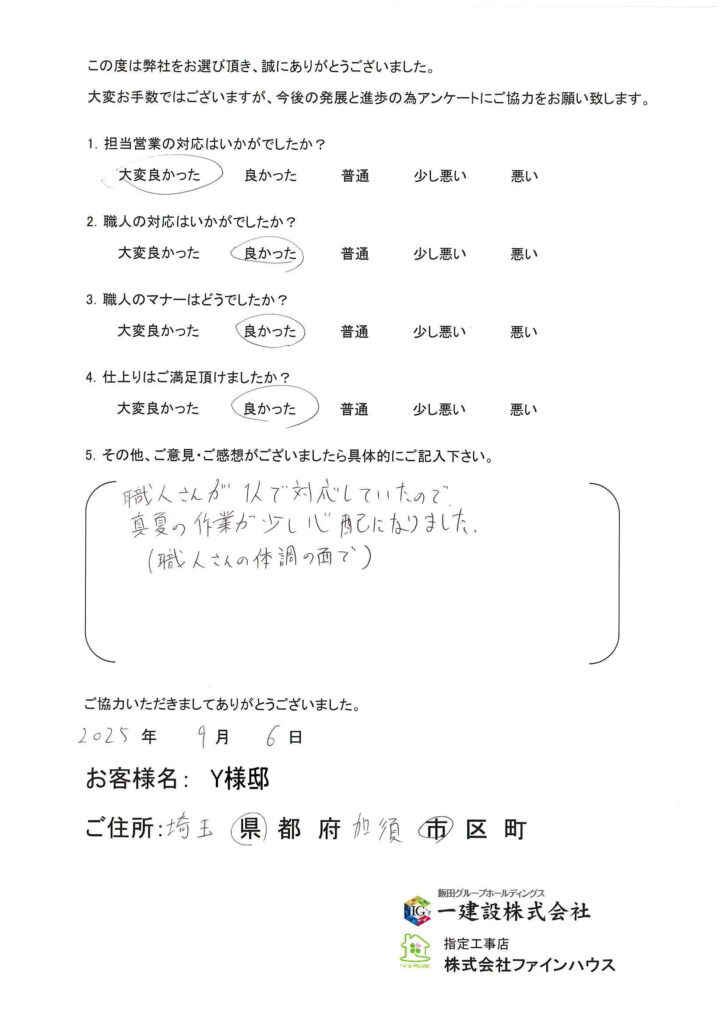 この度は弊社をお選び頂き、誠にありがとうございました。
大変お手数ではございますが、今後の発展と進歩の為アンケートにご協力をお願い致します。
1. 担当営業の対応はいかがでしたか？
大変良かった 良かった 普通 少し悪い 悪い
2. 職人の対応はいかがでしたか？
大変良かった 良かった 普通 少し悪い 悪い
3. 職人のマナーはどうでしたか？
大変良かった 良かった 普通 少し悪い 悪い
4. 仕上りはご満足頂けましたか？
大変良かった 良かった 普通 少し悪い 悪い
5. その他、ご意見・ご感想がございましたら具体的にご記入下さい。
職人さんが1人で対応していたので、
真夏の作業が少し心配になりました.
(職人さんの体調の面で)
ご協力いただきましてありがとうございました。
2025 年 9 月 6 日
お客様名： Y様邸
ご住所：埼玉 県 都 府 加須 市 区 町
飯田グループホールディングス
IG 一建設株式会社
指定工事店
Fine House 株式会社ファインハウス